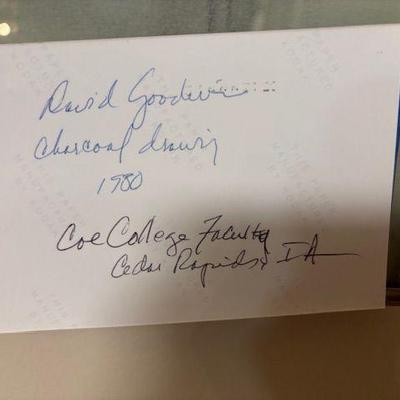 David Goodwin
charcoal drawing
1980
Coe College Faculty
Cedar Rapids, IA